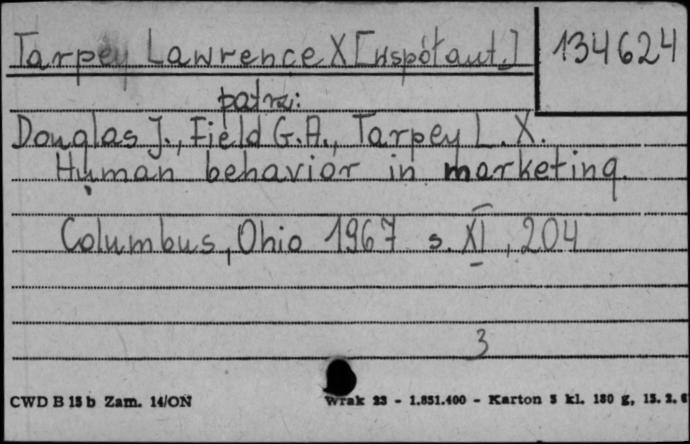 Tarpey Lawrence X [współaut.] 134624
patrz:
Douglas J., Field G.A., Tarpey L. X.
Human behavior in marketing.
Columbus, Ohio 1967 s. XI, 204
3
CWD B 15 b Zam. 14/ON Wrak 23 - 1.851.400 - Karton 5 kl. 180 g, 15. 2. 6